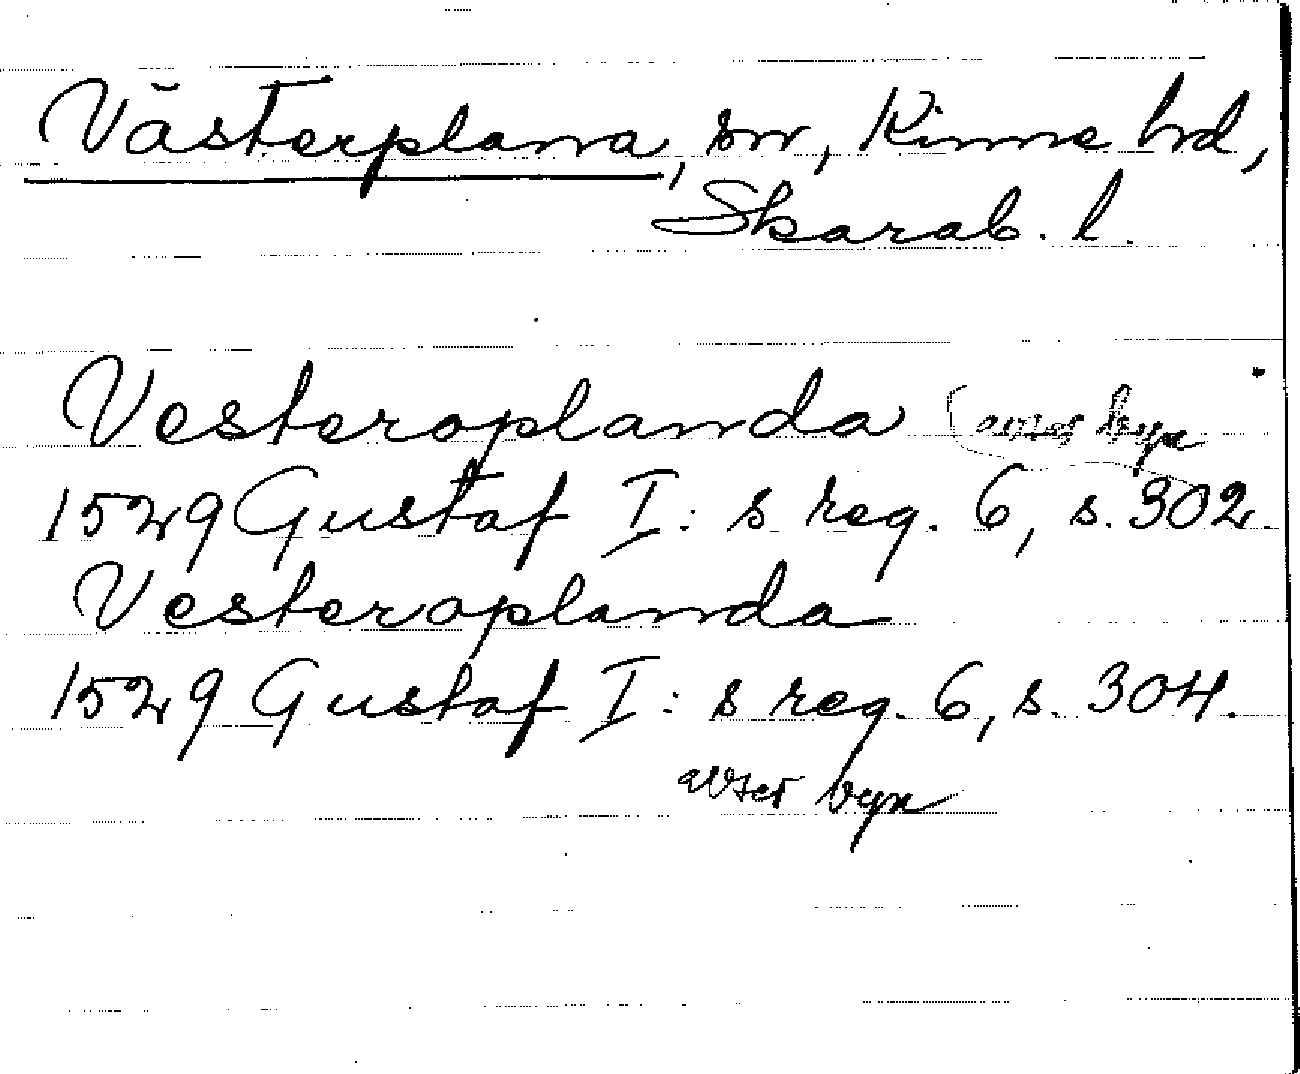 Västerplana, sn, Kinne hd,
Skarab. l.
Vesteroplanda (avser byn
1529 Gustaf I: s reg. 6, s. 302.
Vesteroplanda
1529 Gustaf I: s reg. 6, s. 304.
avser byn